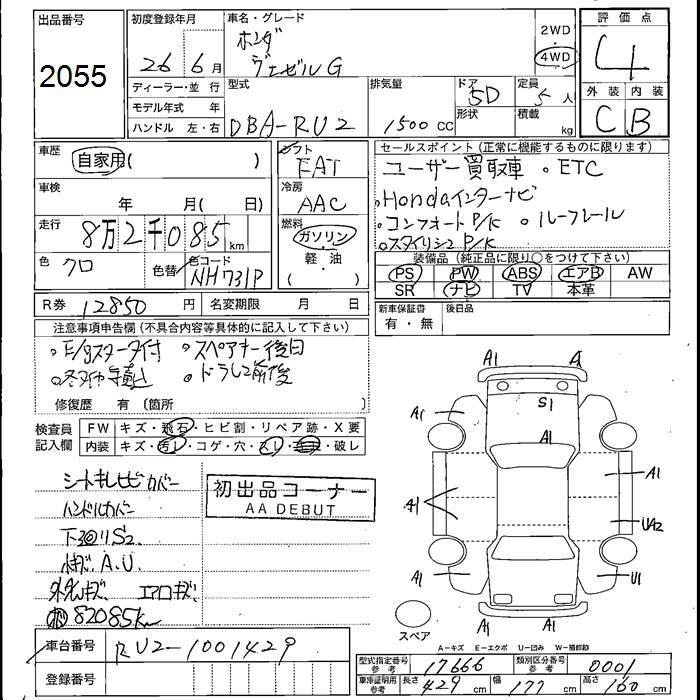 出品番号
2055
初度登録年月
26年6月
車名・グレード
ホンダ
ヴェゼルG
2WD
4WD
評価点
4
外装 内装
C B
ディーラー・並行
モデル年式 年
ハンドル 左・右
型式
DBA-RU2
排気量
1500 cc
ドア
5D
形状
定員
5人
積載
kg
車歴
自家用( )
シフト
FAT
車検
年 月( 日)
冷房
AAC
走行
8万2千085km
燃料
ガソリン
軽・油
( )
色
クロ
色替
色コード
NH731P
セールスポイント(正常に機能するものに限ります)
ユーザー買取車 ○ ETC
○Hondaインターナビ
○コンフォートP/K ○ルーフレール
○スタイリッシュP/K
装備品(純正品に限り○をつけて下さい)
PS PW ABS エアB AW
SR ナビ TV 本革
R券 12850円 名変期限 月 日
新車保証書
有・無
後日品
注意事項申告欄(不具合内容等具体的に記入して下さい)
○E/gスターター付 ○スペアキー後日
○冬タイヤ積込 ○ドラレコ前後
修復歴 有(箇所 )
検査員
記入欄
FW キズ・飛石・ヒビ割・リペア跡・X要
内装 キズ・汚レ・コゲ・穴・スレ・ ・破レ
シートキレヒビカバー
ハンドルカバー
下回りS2
小キズ.A.U
外 キズ エアロキズ
82085km
初出品コーナー
AA DEBUT
A1 A1
S1
A1
A1
A1
A1
UA2
A1
U1
A1 A1
スペア
A-キズ E-エクボ U-凹み W-補修跡
車台番号 RU2-1001429
登録番号
型式指定番号
参考
17666
類別区分番号
参考
0001
車庫証明用
参考
長さ 429cm 幅 177cm 高さ 160cm